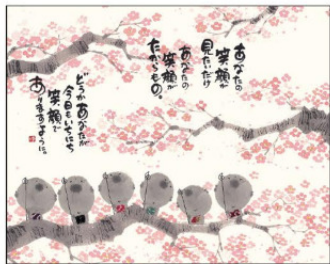 あなたの
笑顔が
見たいだけ
あなたの
笑顔が
たからもの。
どうかあなたが
今日もいちにち
笑顔で
ありますように。